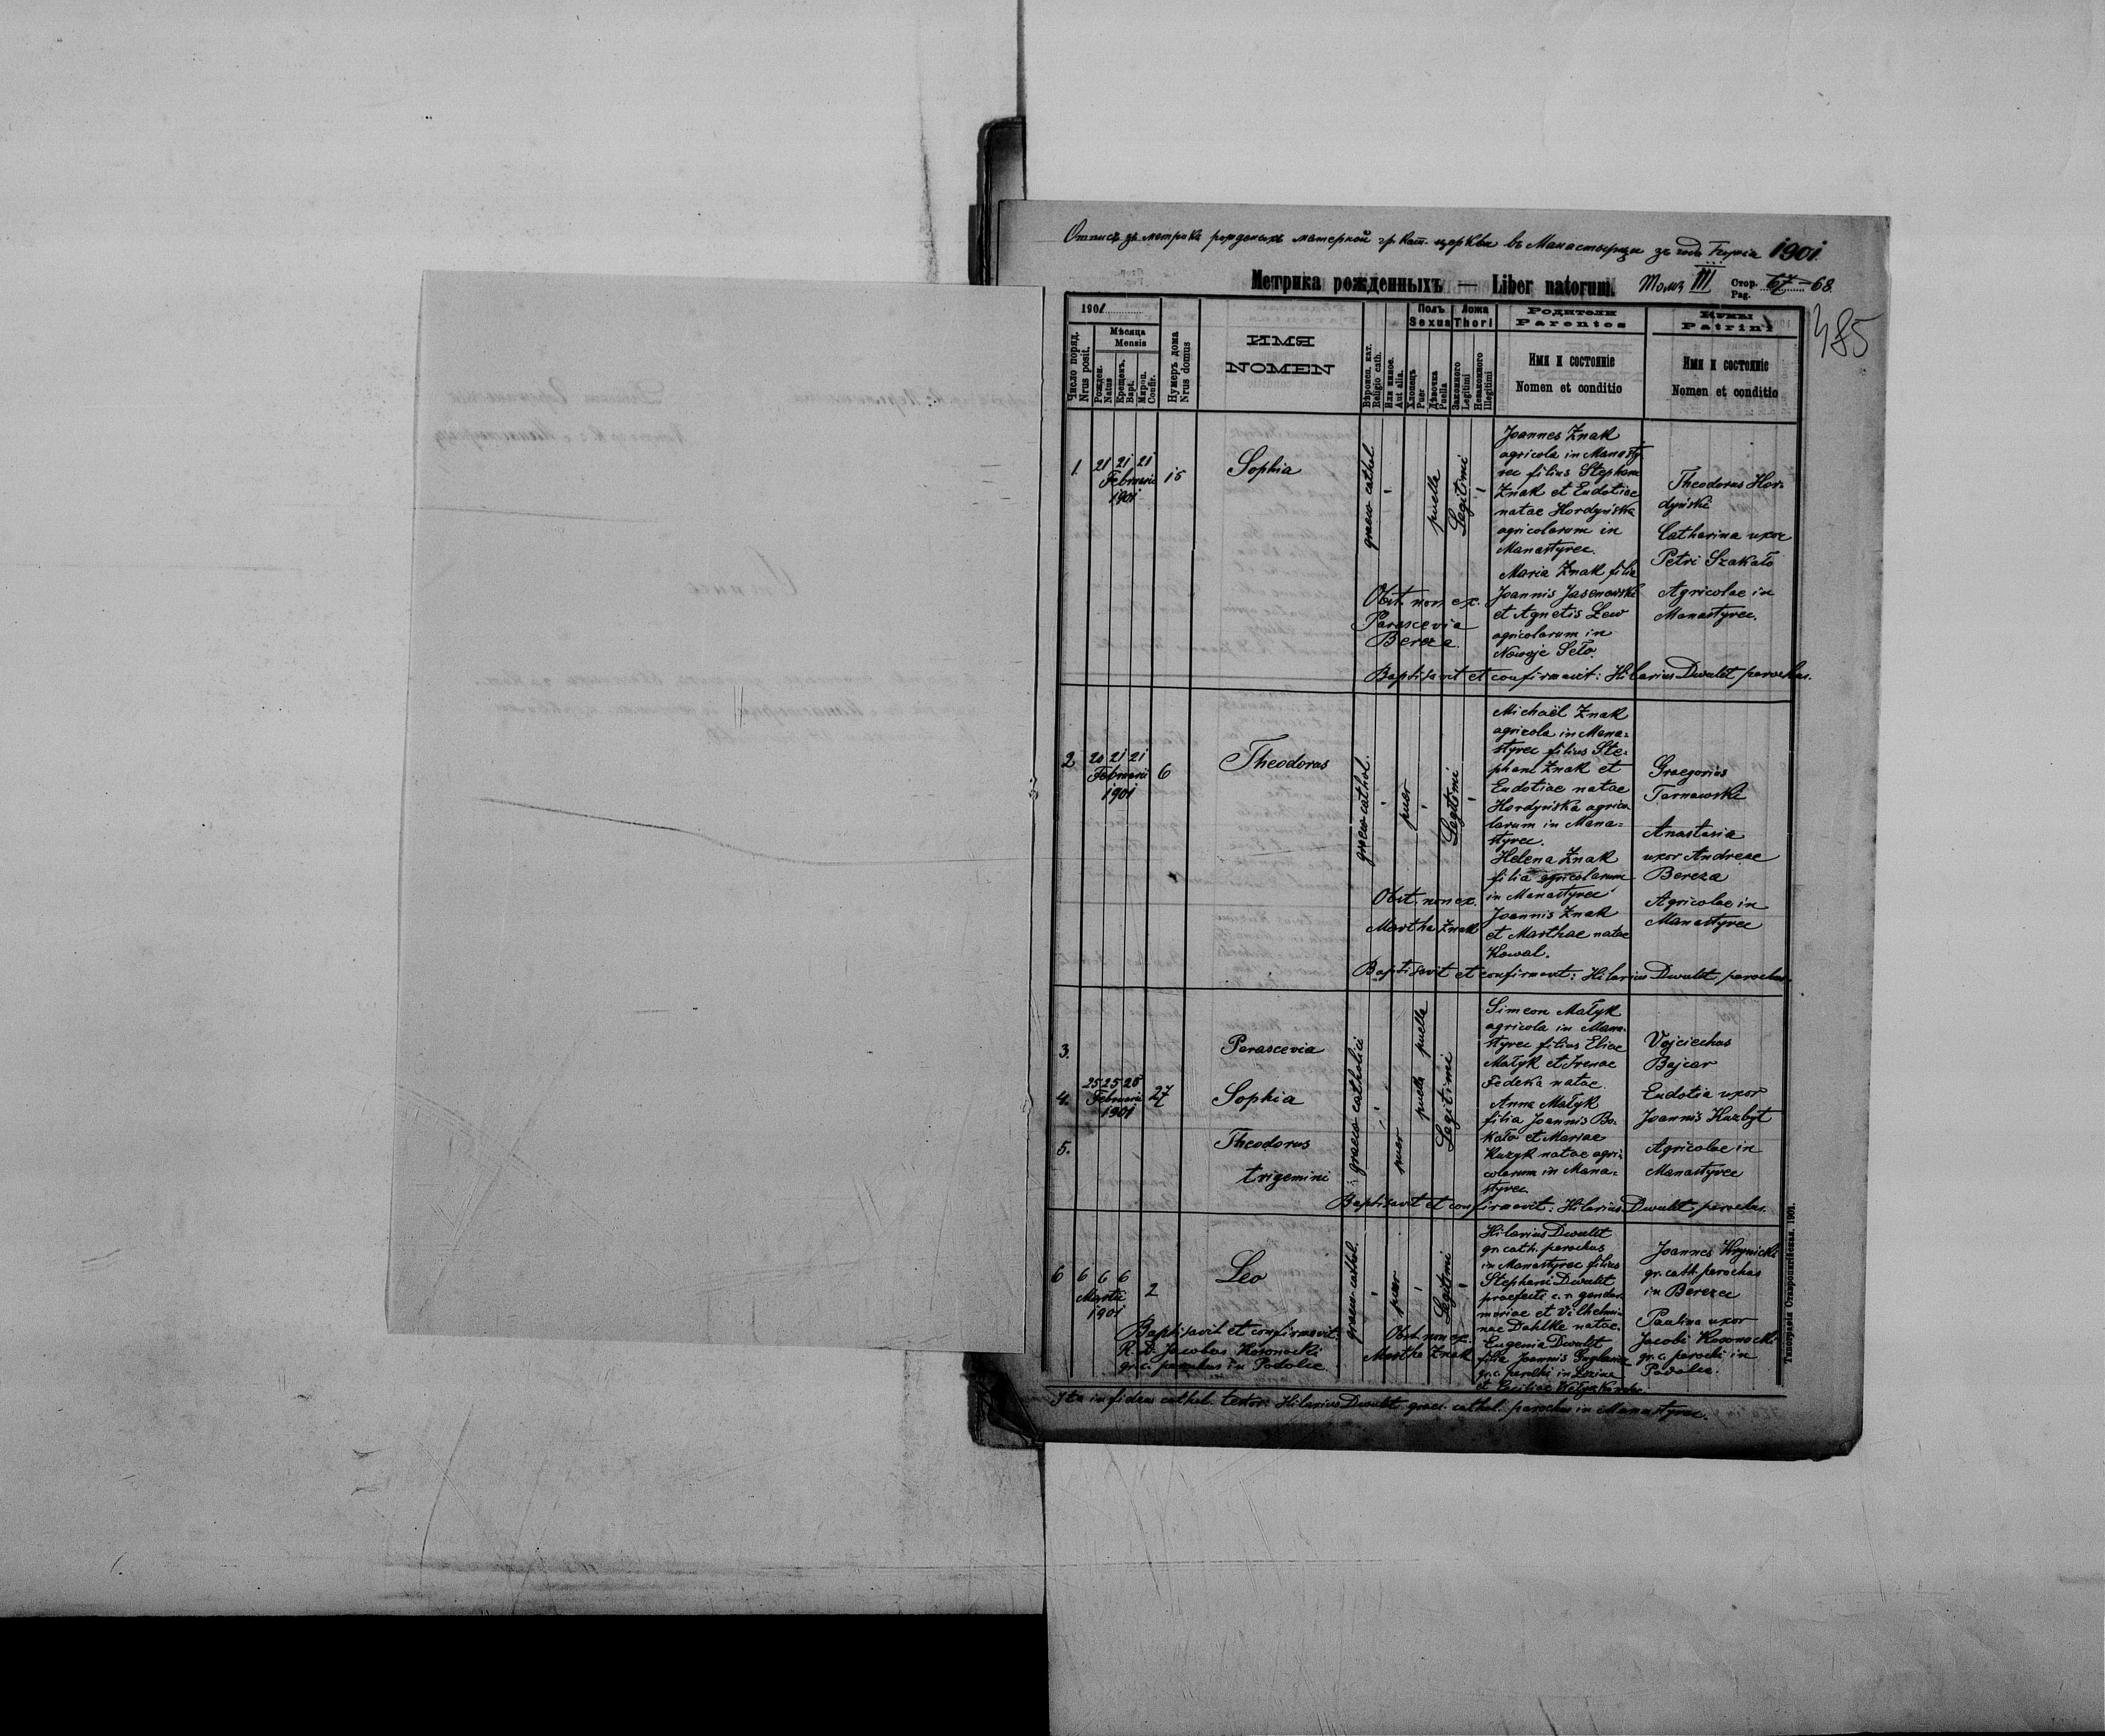 Отписъ зъ метрики рожденыхъ матерной гр. кат. церкви въ Манастырци за годъ 1901.
Метрика рожденныхъ — Liber natorum. Томъ III Стор. Pag. 67-68.
485
1901
Число поряд. Nrus posit.
Мѣсяца Mensis
Рожден. Natus
Крещенъ. Bapt.
Мѵроп. Confir.
Нумеръ дома Nrus domus
ИМЯ
NOMEN
Вѣроисп. кат. Religio cath.
Или иное. Aut alia.
Полъ Sexus
Хлопець Puer
Дѣвочка Puella
Ложа Thori
Законного Legitimi
Незаконного Illegitimi
Родители
Parentes
Имя и состояніе
Nomen et conditio
Кумы
Patrini
Имя и состояніе
Nomen et conditio
1. 21 21 21
Februarii
1901
15
Sophia
graeco cathol
puella
Legitimi
Joannes Znak
agricola in Manasty
rec filius Stephani
Znak et Eudotiae
natae Hordyńska
agricolarum in
Manastyrec.
Maria Znak filia
Joannis Jasenowski
et Agnetis Lew
agricolarum in
Nowoje Seło.
Theodorus Hor-
dyński
Catharina uxor
Petri Szakało
Agricolae in
Manastyrec.
Obst. non ex.
Parascevia
Bereza
Baptisavit et confirmavit: Hilarius Dwulit parochus.
2 20 21 21
Februarii
1901
6
Theodorus
graeco cathol.
puer
Legitimi
Michaël Znak
agricola in Mana=
styrec filius Ste=
phani Znak et
Eudotiae natae
Hordyńska agrico
larum in Mana=
styrec.
Helena Znak
filia agricolarum
in Manastyrec
Joannis Znak
et Marthae natae
Kowal.
Graegorius
Tarnawski
Anastasia
uxor Andreae
Bereza
Agricolae in
Manastyrec
Obst. non ex.
Martha Znak
Baptisavit et confirmavit: Hilarius Dwulit, parochus.
3.
Parascevia
25 25 25
4. Februarii 27
1901
Sophia
5.
Theodorus
trigemini
graeco catholici
puella
puella
puer
Legitimi
Simeon Małyk
agricola in Mana-
styrec filius Eliae
Małyk et Irenae
Fedeka natae.
Anna Małyk
filia Joannis Bo-
kało et Mariae
Kuzyk natae agri-
colarum in Mana-
styrec
Vojciechus
Bajcar
Eudotia uxor
Joannis Kuzbyt
Agricolae in
Manastyrec
Baptisavit et confirmavit: Hilarius Dwulit parochus.
6 6 6 6
Martii
1901
2
Leo
graeco cathol.
puer
Legitimi
Hilarius Dwulit
gr. cath. parochus
in Manastyrec filius
Stephani Dwulit
praefecti c. r. gendar
meriae et Vilhelmi-
nae Dahlke natae.
Eugenia Dwulit
filia Joannis
gr. c. parochi in
et Ceciliae
Joannes Hrynicki
gr. cath. parochus
in Berezec
Paulina uxor
Jacobi Kosonocki
gr. c. parochi in
Podolce.
Baptisavit et confirmavit:
R. D. Jacobus Kosonocki
gr. c. parochus in Podolce.
Obst. non ex.
Martha Znak
Ita in fidem cathol. testor: Hilarius Dwulit graec. cathol. parochus in Manastyrec.
Типографія Ставропигійская. 1901.